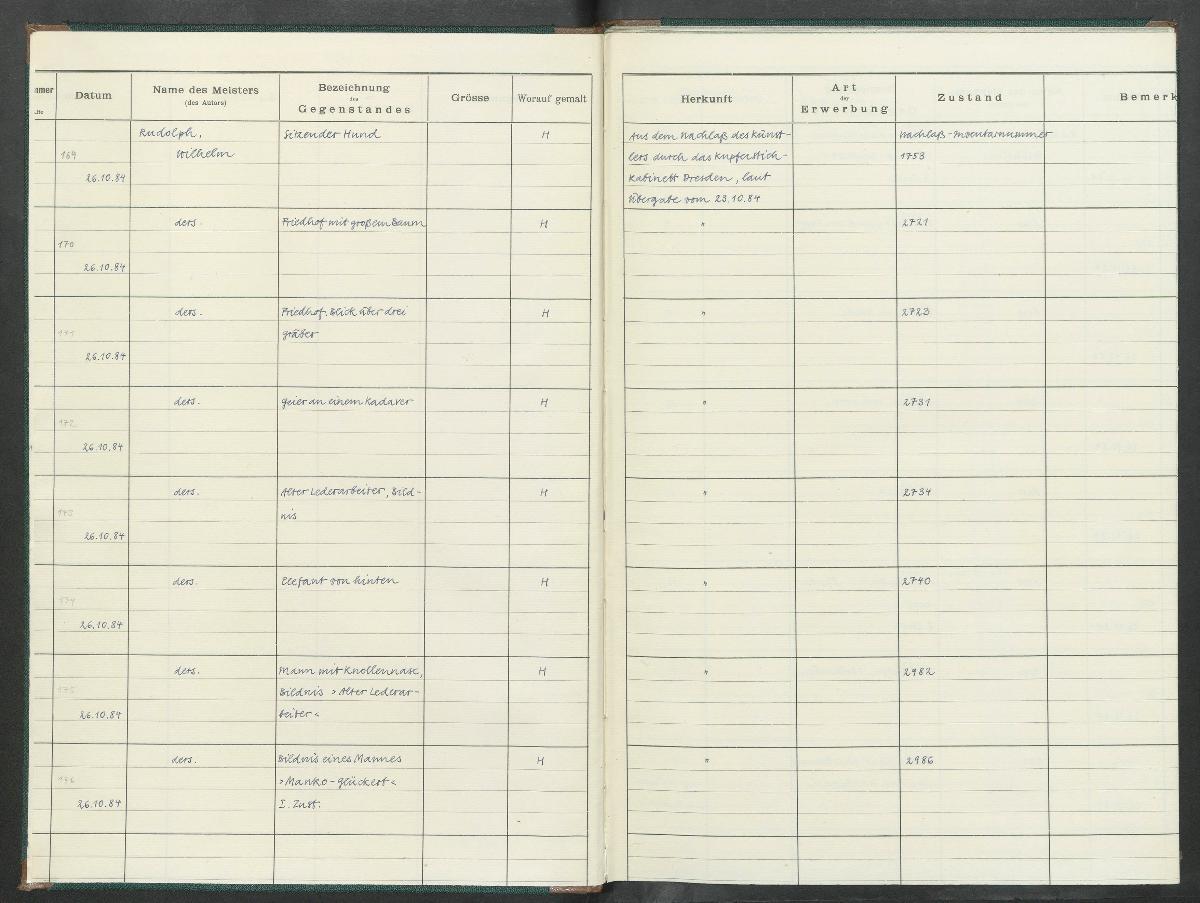 mmer
Datum
Name des Meisters
(des Autors)
Bezeichnung
des
Gegenstandes
Grösse
Worauf gemalt
Herkunft
Art
der
Erwerbung
Zustand
Bemerk
Rudolph, Sitzender Hund H Aus dem Nachlaß des Künst- Nachlaß-Inventarnummer
169 Wilhelm lers durch das Kupferstich- 1753
26.10.84 Kabinett Dresden, laut
Übergabe vom 23.10.84
ders. Friedhof mit großem Baum H " 2721
170
26.10.84
ders. Friedhof. Blick über drei H " 2723
171 Gräber
26.10.84
ders. Geier an einem Kadaver H " 2731
172
26.10.84
ders. Alter Lederarbeiter, Bild- H " 2734
173 nis
26.10.84
ders. Elefant von hinten H " 2740
174
26.10.84
ders. Mann mit Knollennase, H " 2982
175 Bildnis >Alter Lederar-
26.10.84 beiter<
ders. Bildnis eines Mannes H " 2986
176 >Manko-Glückert<
26.10.84 I. Zust.